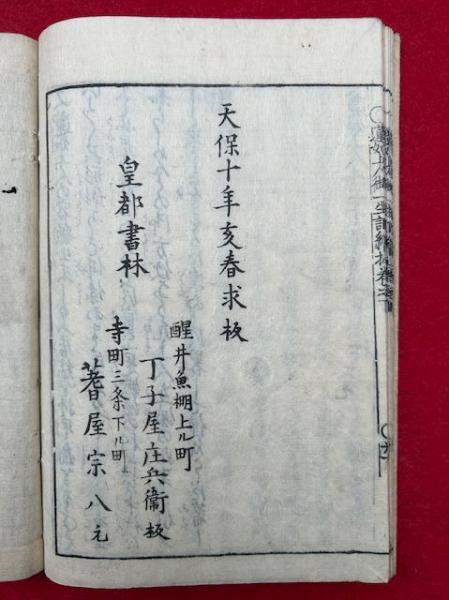 天保十年亥春求板
皇都書林
醒井魚棚上ル町
丁子屋庄兵衞板
寺町三条下ル町
蓍屋宗八元